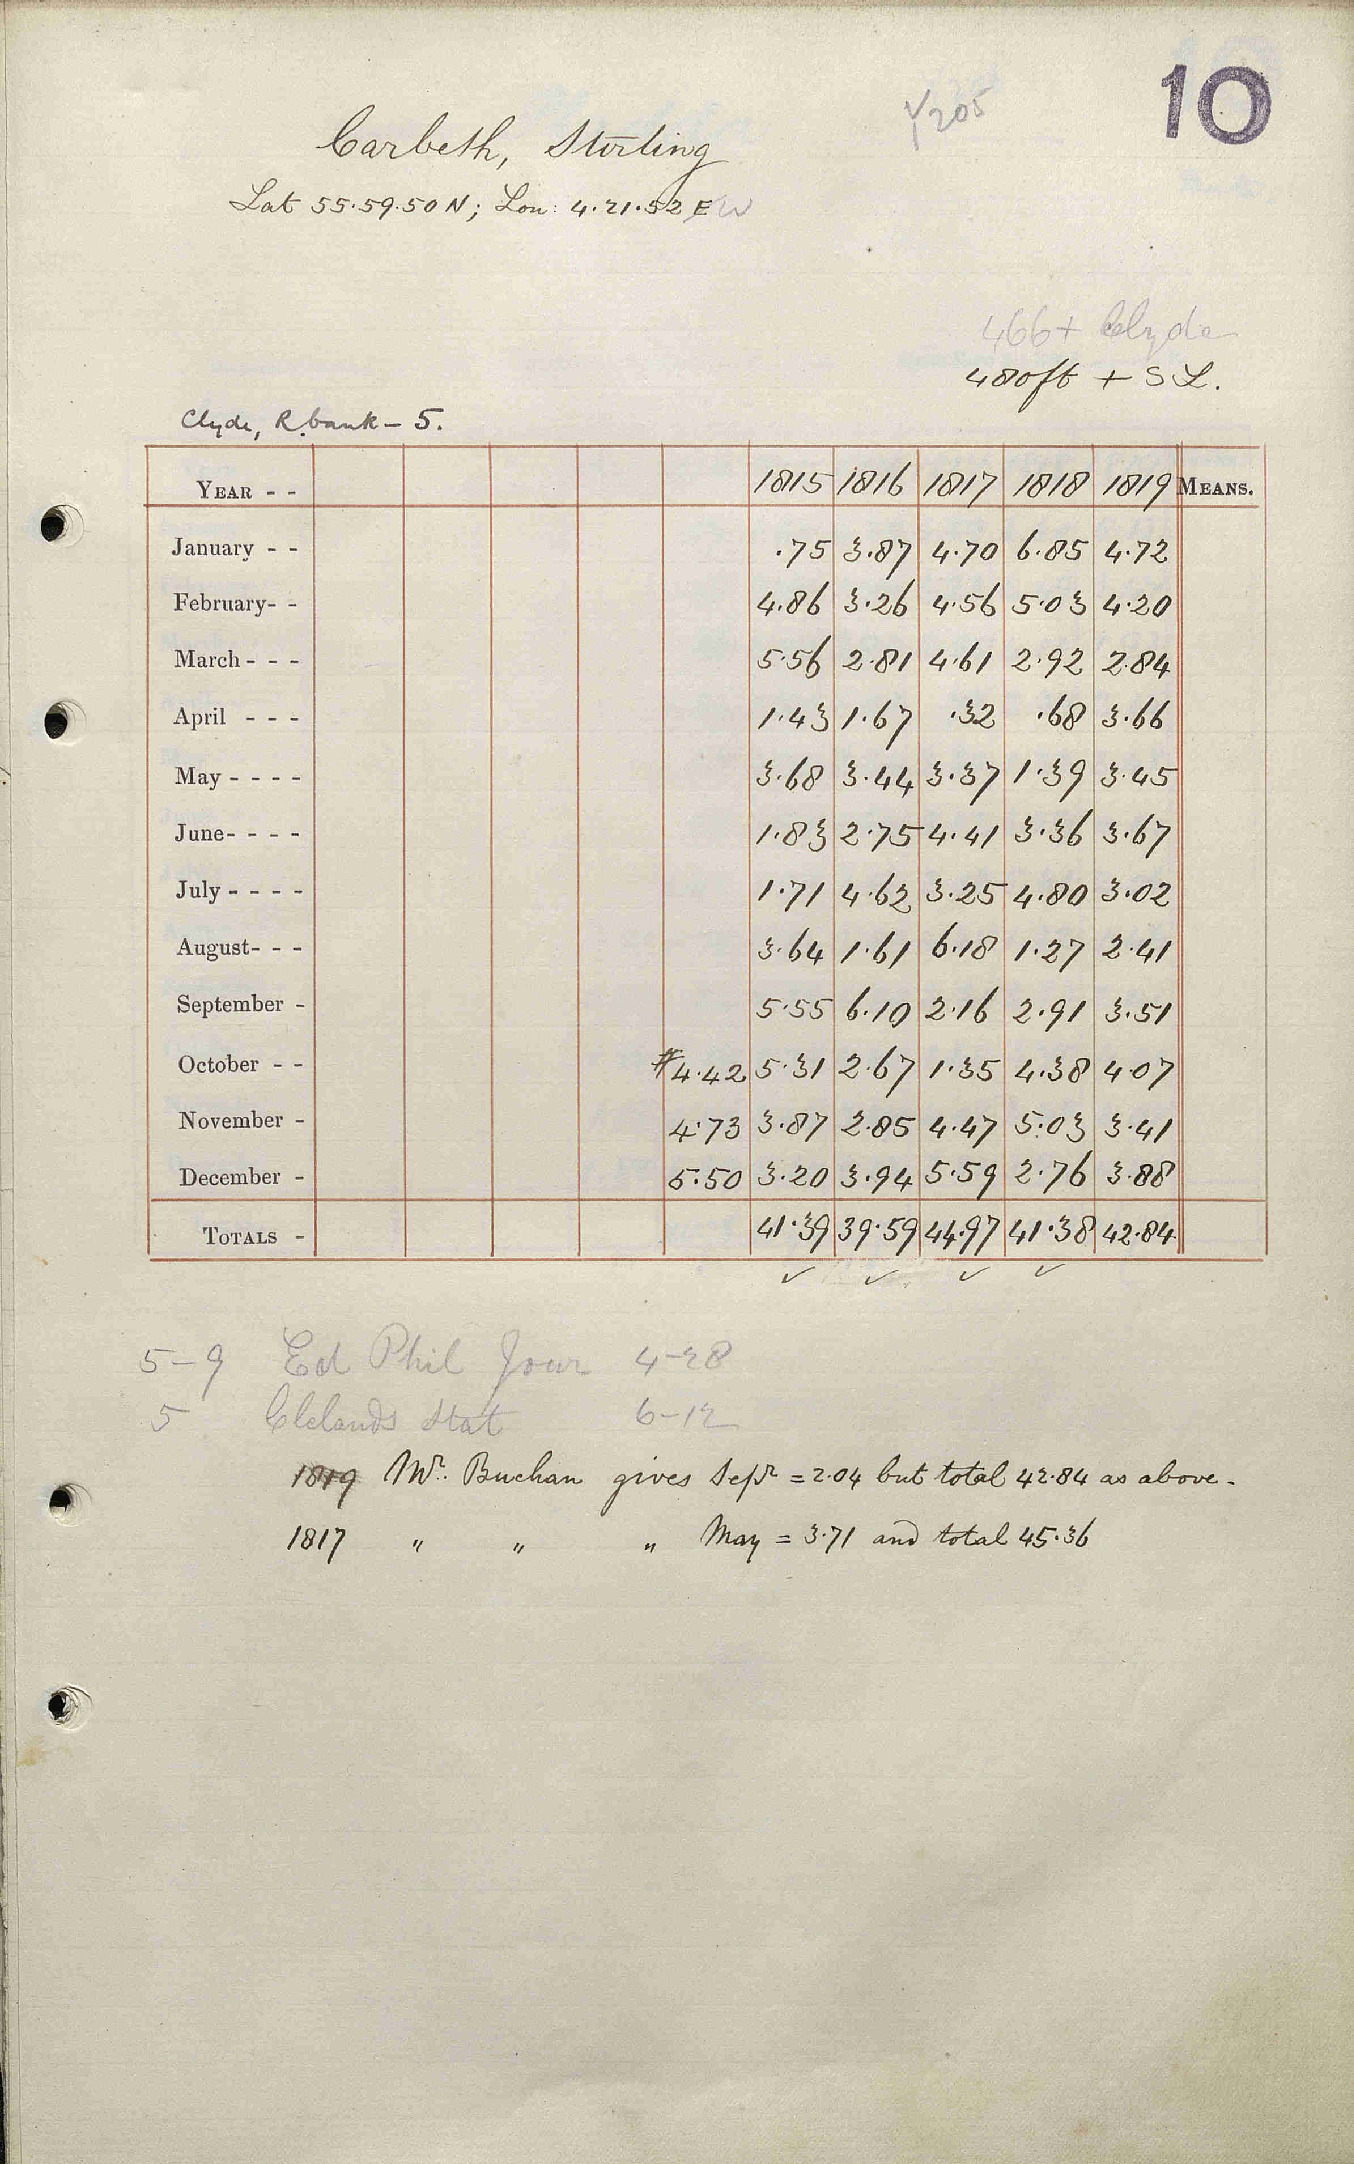 10
205
Carbeth, Stirling
Lat 55.59.50 N; Lon: 4.21.52 E W
466+ Clyde
480ft + S L.
Clyde, R. bank - 5.
YEAR - - 1815 1816 1817 1818 1819 MEANS.
January - - .75 3.87 4.70 6.85 4.72
February- - 4.86 3.26 4.56 5.03 4.20
March - - - 5.56 2.81 4.61 2.92 2.84
April - - - 1.43 1.67 .32 .68 3.66
May - - - - 3.68 3.44 3.37 1.39 3.45
June- - - - 1.83 2.75 4.41 3.36 3.67
July - - - - 1.71 4.62 3.25 4.80 3.02
August- - - 3.64 1.61 6.18 1.27 2.41
September - 5.55 6.10 2.16 2.91 3.51
October - - #4.42 5.31 2.67 1.35 4.38 4.07
November - 4.73 3.87 2.85 4.47 5.03 3.41
December - 5.50 3.20 3.94 5.59 2.76 3.88
TOTALS - 41.39 39.59 44.97 41.38 42.84
✓ ✓ ✓ ✓
5-9 Ed Phil Jour 4-28
5 Clelands Stat 6-12
1819 Mr. Buchan gives Sepr = 2.04 but total 42.84 as above.
1817 " " " May = 3.71 and total 45.36